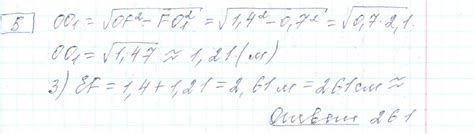 5 OO₁ = √OF² - FO₁² = √1,4² - 0,7² = √0,7·2,1
OO₁ = √1,47 ≈ 1,21 (м)
3) EF = 1,4 + 1,21 = 2,61 м = 261 см ≈
Ответ 261